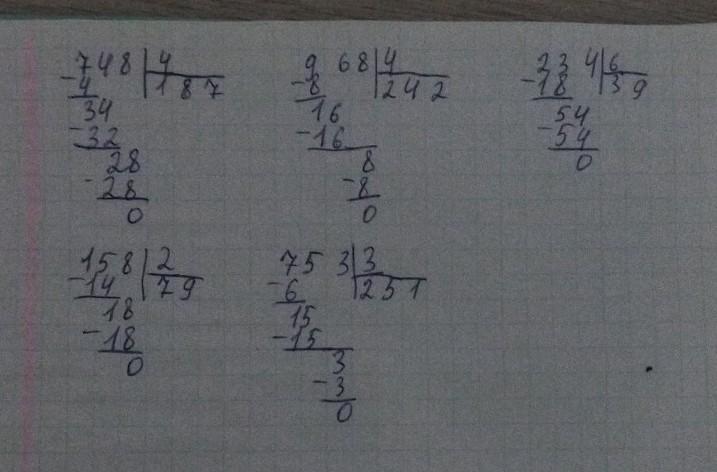 748 | 4
-4 | 187
34
-32
28
-28
0
968 | 4
-8 | 242
16
-16
8
-8
0
234 | 6
-18 | 39
54
-54
0
158 | 2
-14 | 79
18
-18
0
753 | 3
-6 | 251
15
-15
3
-3
0